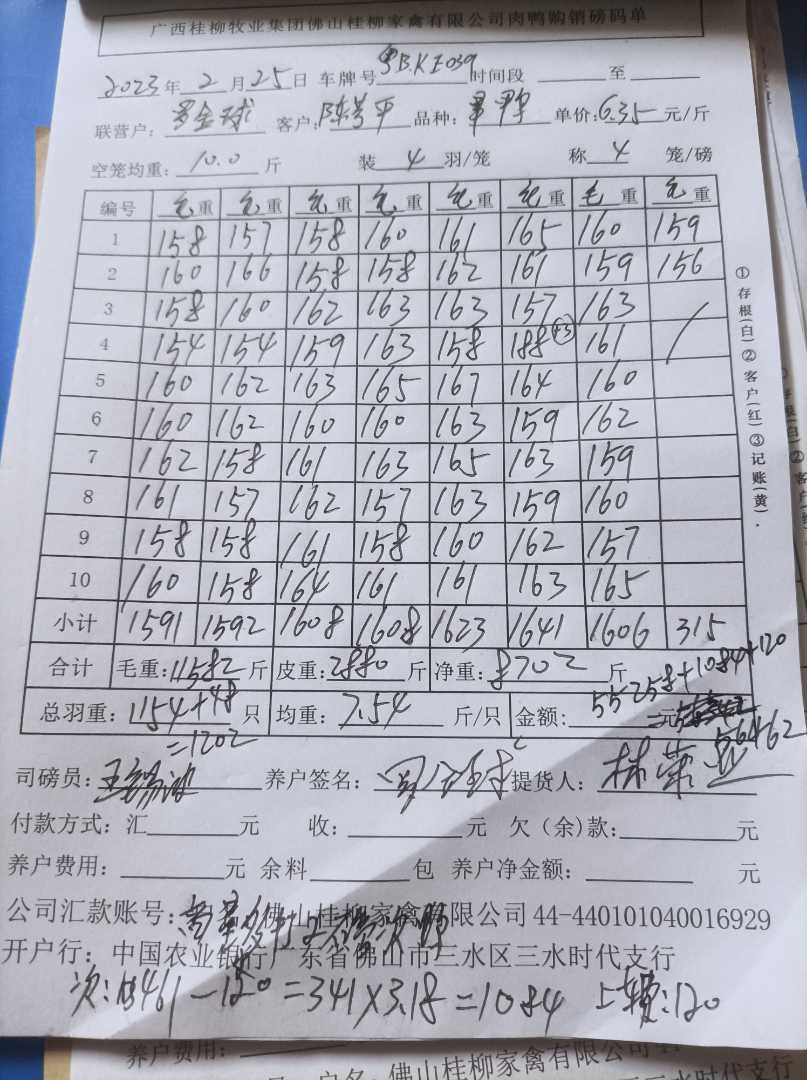 广西桂柳牧业集团佛山桂柳家禽有限公司肉鸭购销磅码单
2023年2月25日 车牌号 粤B.KE039 时间段 至
联营户: 罗金球 客户: 陈芳平 品种: 单价: 6.35 元/斤
空笼均重: 10.0 斤 装 4 羽/笼 称 4 笼/磅
编号 毛重 毛重 毛重 毛重 毛重 毛重 毛重 毛重
1 158 157 158 160 161 165 160 159
2 160 166 158 158 162 161 159 156
3 158 160 162 163 163 157 163
4 154 154 159 163 158 188 +3 161 /
5 160 162 163 165 167 164 160
6 160 162 160 160 163 159 162
7 162 158 161 163 165 163 159
8 161 157 162 157 163 159 160
9 158 158 161 158 160 162 157
10 160 158 164 161 161 163 165
小计 1591 1592 1608 1608 1623 1641 1606 315
合计 毛重: 11582 斤 皮重: 2880 斤 净重: 8702 斤
55258+1084+120
总羽重: 1154+48 只 均重: 7.54 斤/只 金额: 元
=1202
56462
司磅员: 养户签名: 提货人: 林荣
付款方式: 汇 元 收: 元 欠(余)款: 元
养户费用: 元 余料 包 养户净金额: 元
公司汇款账号: 佛山桂柳家禽有限公司 44-440101040016929
开户行: 中国农业银行广东省佛山市三水区三水时代支行
次: 461-120=341×3.18=1084 上车费:120
①存根(白)②客户(红)③记账(黄).
养户费用:
户名: 佛山桂柳家禽有限公司
三水时代支行